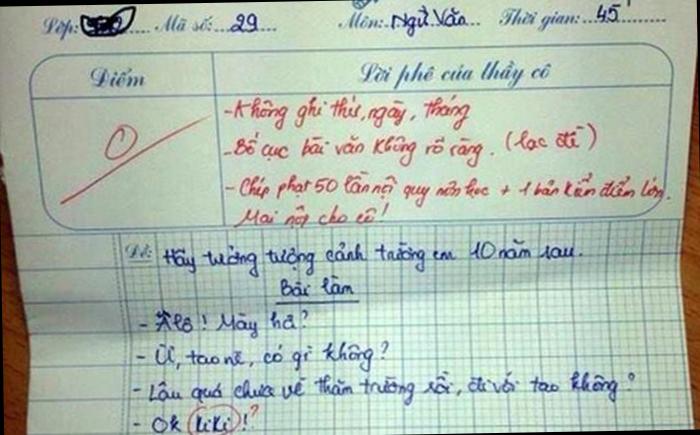 Lớp: Mã số: 29 Môn: Ngữ Văn Thời gian: 45'
Điểm
Lời phê của thầy cô
0
- Không ghi thứ, ngày, tháng
- Bố cục bài văn không rõ ràng. (lạc đề)
- Chép phạt 50 lần nội quy môn học + 1 bản kiểm điểm lớn.
Mai nộp cho cô!
Đề: Hãy tưởng tượng cảnh trường em 10 năm sau.
Bài làm
- Alô! Mày hả?
- Ừ, tao nè, có gì không?
- Lâu quá chưa về thăm trường rồi, đi với tao không?
- Ok kiki !?